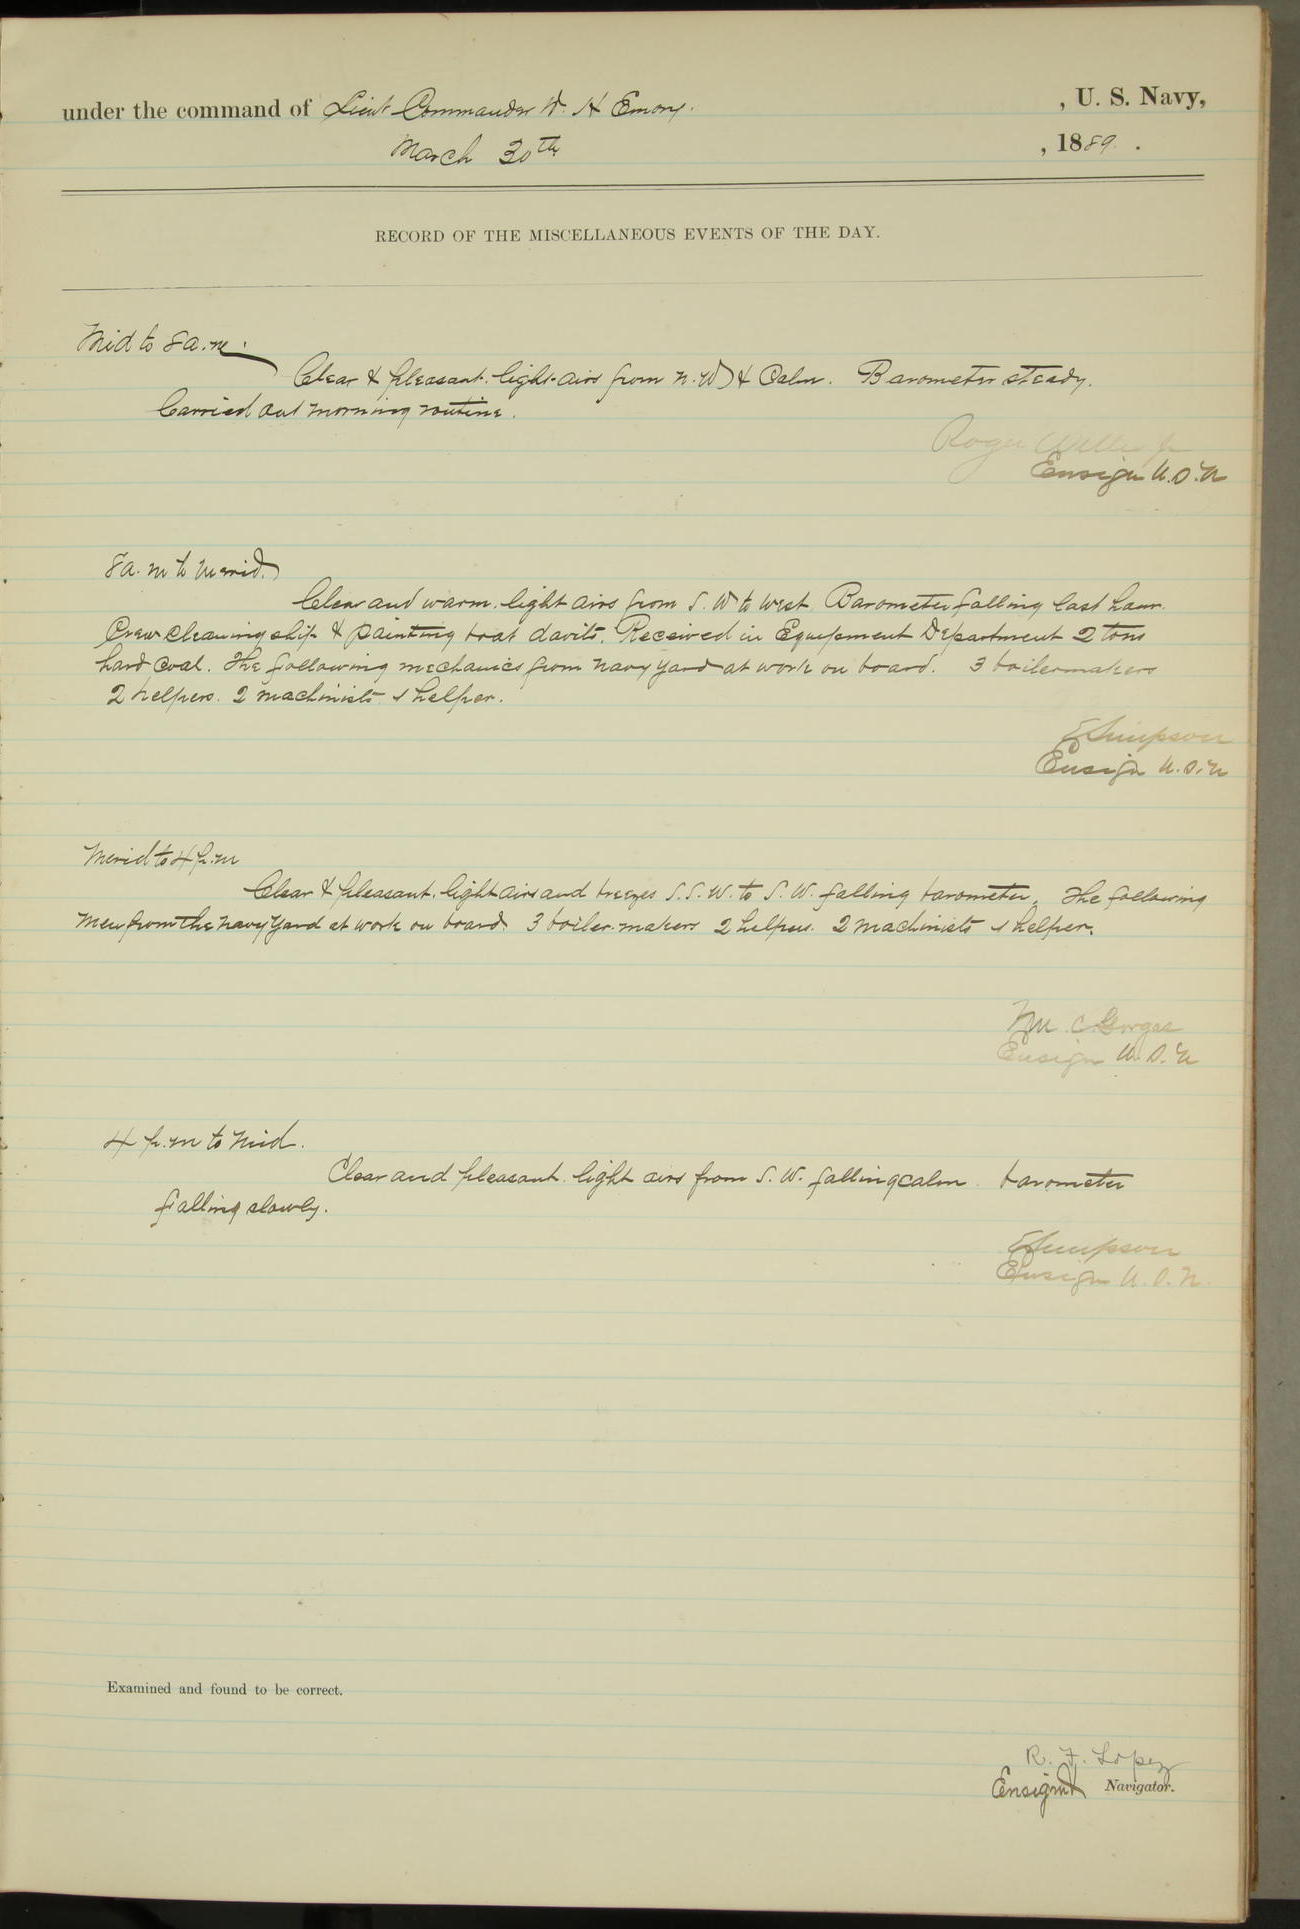 under the command of Lieut Commander W. H Emory. , U. S. Navy,
March 30th , 1889 .
RECORD OF THE MISCELLANEOUS EVENTS OF THE DAY.
Mid to 8 a.m.
Clear & pleasant. light airs from N.W & Calm. Barometer steady.
Carried out morning routine.
Roger Welles jr
Ensign U.S.N
8 a. m to Merid.
Clear and warm. light airs from S. W to West. Barometer falling last hour.
Crew cleaning ship & painting boat davits. Received in Equipment Department 2 tons
hard coal. The following mechanics from navy yard at work on board. 3 boilermakers
2 helpers. 2 machinists 1 helper.
E Simpson
Ensign U.S.N
Merid to 4 p.m
Clear & pleasant. light airs and breezes S.S.W. to S. W. falling barometer. The following
men from the navy yard at work on board 3 boiler-makers 2 helpers. 2 machinists 1 helper.
Wm C. Gorgas
Ensign U.S.N
4 p.m to Mid.
Clear and pleasant. light airs from S. W. falling calm. barometer
falling slowly.
E Simpson
Ensign U.S.N.
Examined and found to be correct.
R. F. Lopez
Ensign & Navigator.